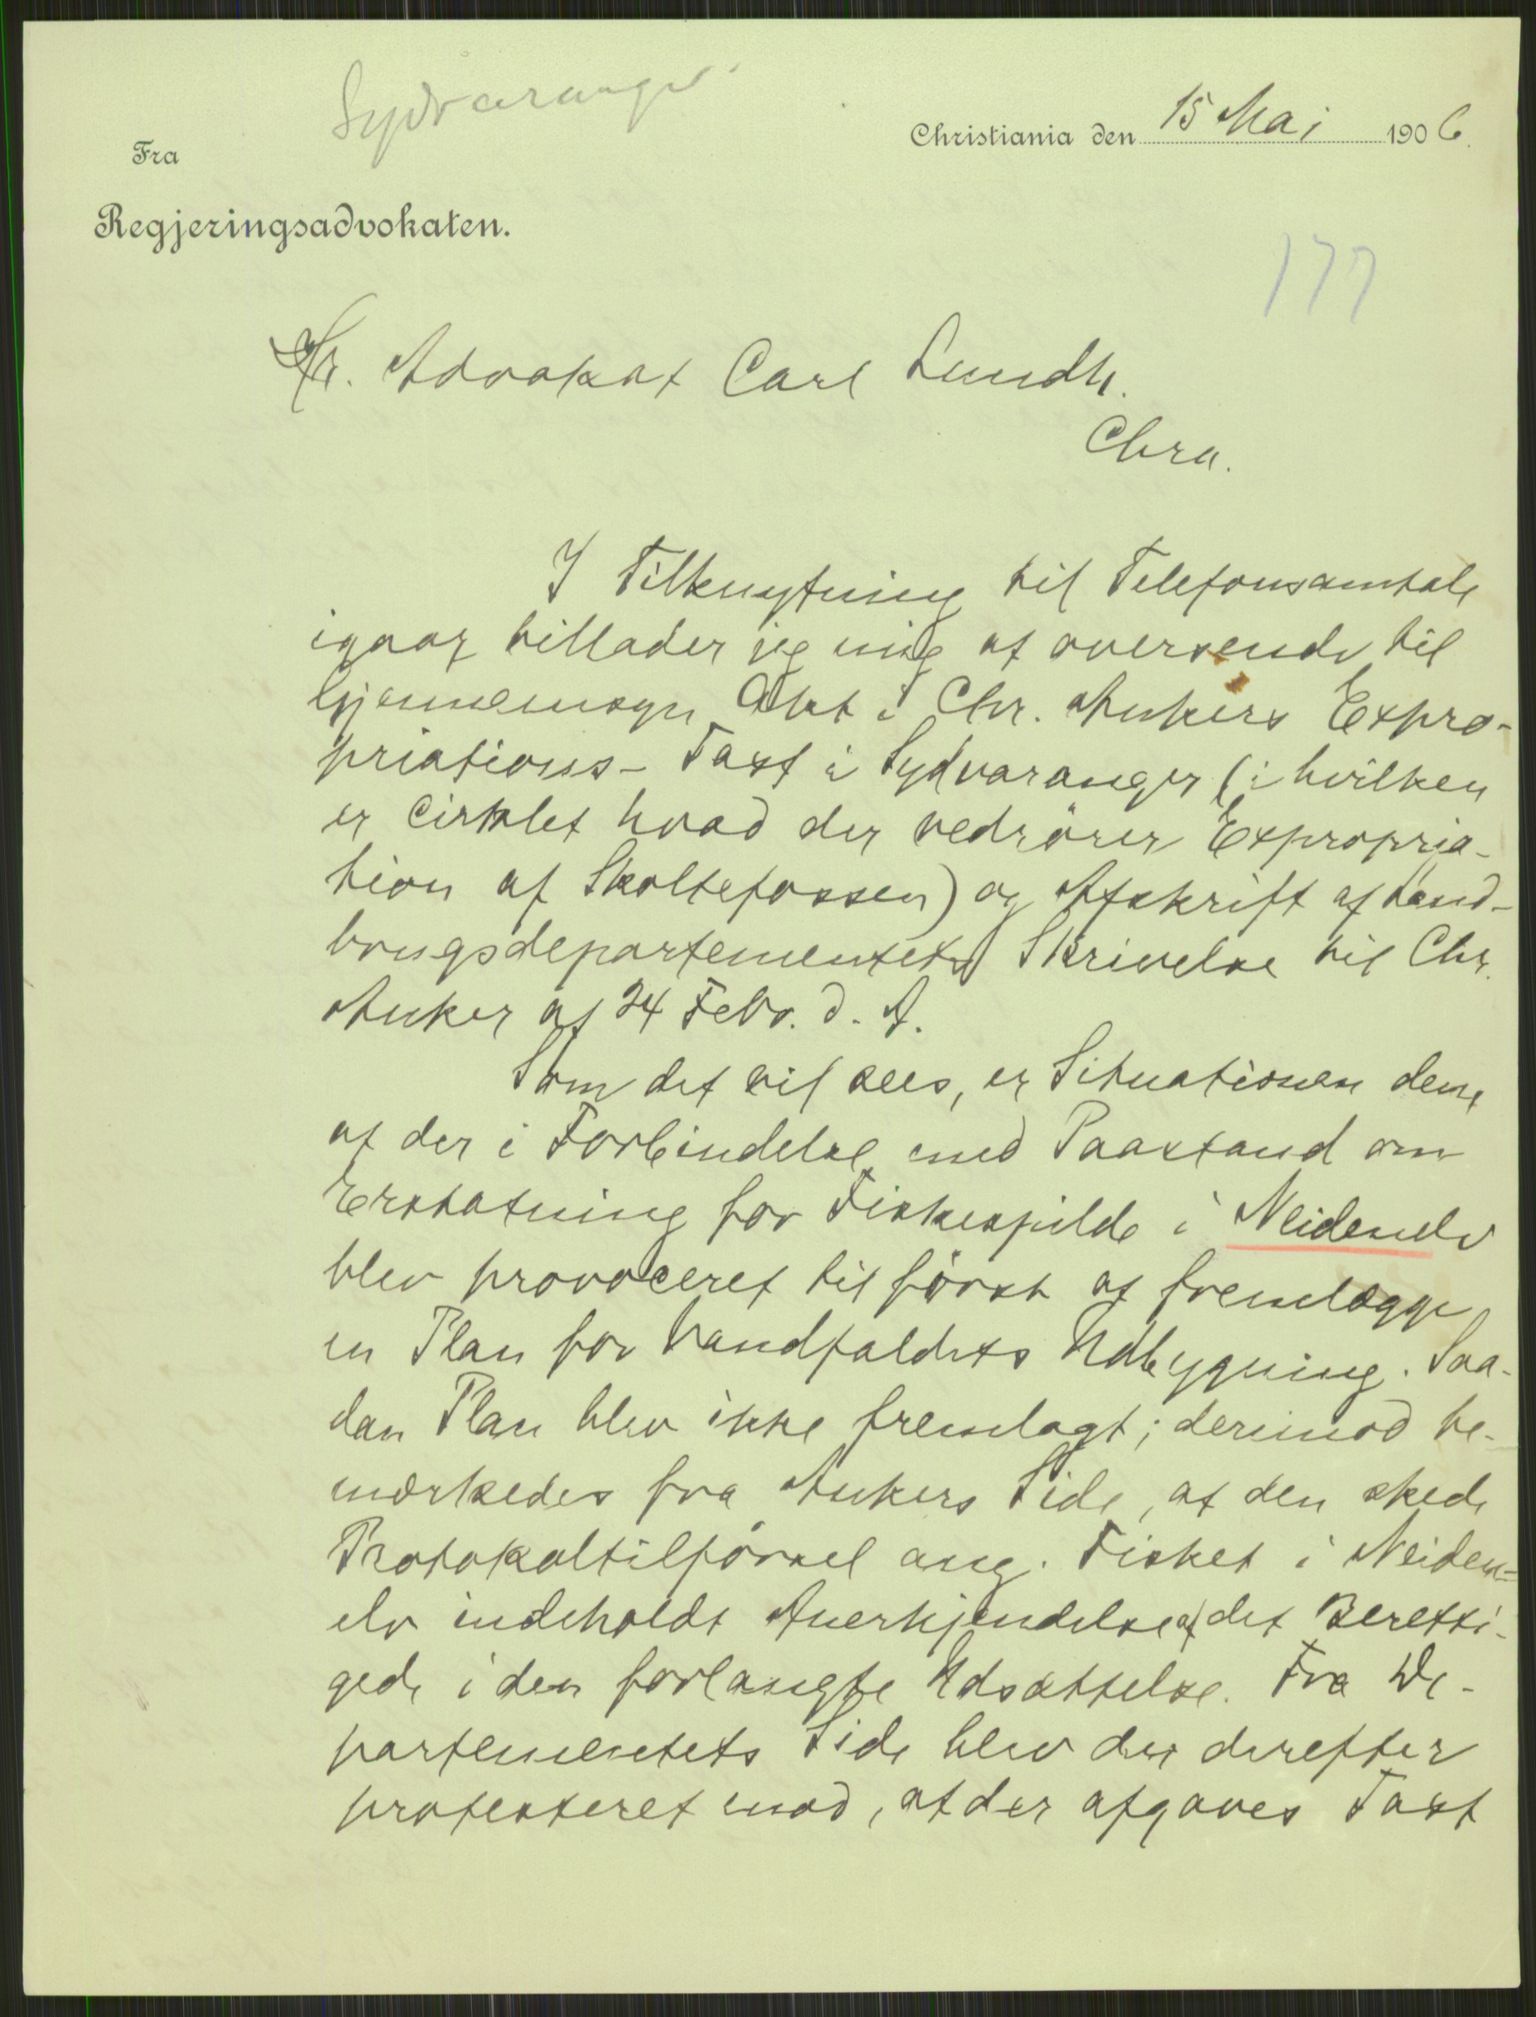 Sydvaranger
Christiania den 15 Mai 1906.
Fra
Regjeringsadvokaten.
177
Hr. Advokat Carl Lundh.
Chra.
I Tilknytning til Telefonsamtale
igaar tillader jeg mig at oversende til
Gjennemsyn Akt i Chr. Ankers Expro-
priations-Taxt i Sydvaranger (i hvilken
er cirklet hvad der vedrører Expropria-
tion af Skoltefossen) og Afskrift af Land-
brugsdepartementets Skrivelse til Chr.
Anker af 24 Febr. d. A.
Som det vil sees, er Situationen den,
at der i Forbindelse med Paastand om
Erstatning for Fiskespilde i Neidenelv
blev provoceret til først at fremlægge
en Plan for Vandfaldets Udbygning. Saa-
dan Plan blev ikke fremlagt; derimod be-
mærkedes fra Ankers Side, at den skede
Protokoltilførsel ang. Fisket i Neiden-
elv indeholdt Anerkjendelse af det Beretti-
gede i den forlangte Udsættelse. Fra De-
partementets Side blev der derefter
protesteret mod, at der afgaves Taxt